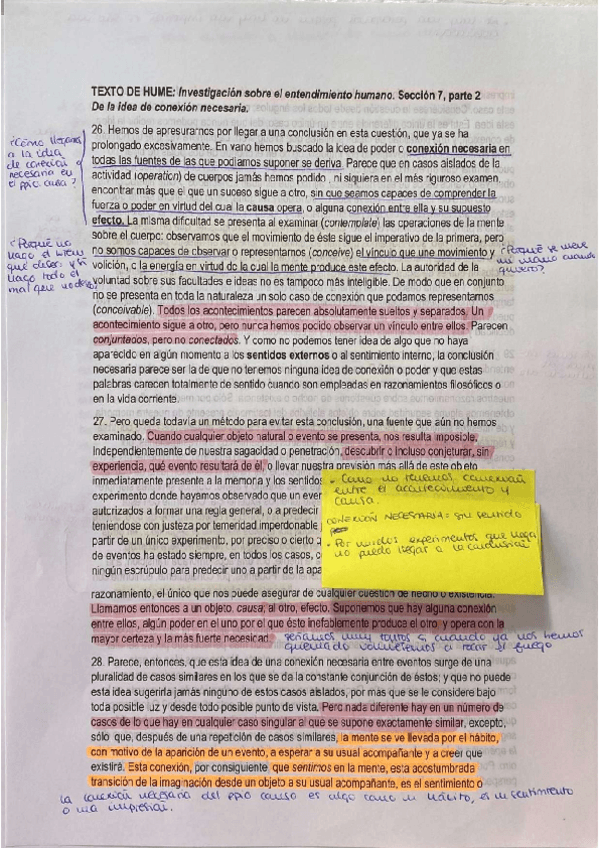 TEXTO DE HUME: Investigación sobre el entendimiento humano. Sección 7, parte 2
De la idea de conexión necesaria.
26. Hemos de apresurarnos por llegar a una conclusión en esta cuestión, que ya se ha
prolongado excesivamente. En vano hemos buscado la idea de poder o conexión necesaria en
todas las fuentes de las que podíamos suponer se deriva. Parece que en casos aislados de la
actividad (operation) de cuerpos jamás hemos podido, ni siquiera en el más riguroso examen,
encontrar más que el que un suceso sigue a otro, sin que seamos capaces de comprender la
fuerza o poder en virtud del cual la causa opera, o alguna conexión entre ella y su supuesto
efecto. La misma dificultad se presenta al examinar (contemplate) las operaciones de la mente
sobre el cuerpo: observamos que el movimiento de éste sigue el imperativo de la primera, pero
no somos capaces de observar o representarnos (conceive) el vínculo que une movimiento y
volición, o la energía en virtud de la cual la mente produce este efecto. La autoridad de la
voluntad sobre sus facultades e ideas no es tampoco más inteligible. De modo que en conjunto
no se presenta en toda la naturaleza un solo caso de conexión que podamos representarnos
(conceivable). Todos los acontecimientos parecen absolutamente sueltos y separados. Un
acontecimiento sigue a otro, pero nunca hemos podido observar un vínculo entre ellos. Parecen
conjuntados, pero no conectados. Y como no podemos tener idea de algo que no haya
aparecido en algún momento a los sentidos externos o al sentimiento interno, la conclusión
necesaria parece ser la de que no tenemos ninguna idea de conexión o poder y que estas
palabras carecen totalmente de sentido cuando son empleadas en razonamientos filosóficos o
en la vida corriente.
27. Pero queda todavía un método para evitar esta conclusión, una fuente que aún no hemos
examinado. Cuando cualquier objeto natural o evento se presenta, nos resulta imposible,
independientemente de nuestra sagacidad o penetración, descubrir o incluso conjeturar, sin
experiencia, qué evento resultará de él, o llevar nuestra previsión más allá de este objeto
inmediatamente presente a la memoria y los sentidos
experimento donde hayamos observado que un even
autorizados a formar una regla general, o a predecir
teniéndose con justeza por temeridad imperdonable
partir de un único experimento, por preciso o cierto q
de eventos ha estado siempre, en todos los casos, c
ningún escrúpulo para predecir uno a partir de la apa
razonamiento, el único que nos puede asegurar de cualquier cuestión de hecho o existencia.
Llamamos entonces a un objeto, causa, al otro, efecto. Suponemos que hay alguna conexión
entre ellos, algún poder en el uno por el que éste inefablemente produce el otro y opera con la
mayor certeza y la más fuerte necesidad.
28. Parece, entonces, que esta idea de una conexión necesaria entre eventos surge de una
pluralidad de casos similares en los que se da la constante conjunción de éstos; y que no puede
esta idea sugerirla jamás ninguno de estos casos aislados, por más que se le considere bajo
toda posible luz y desde todo posible punto de vista. Pero nada diferente hay en un número de
casos de lo que hay en cualquier caso singular al que se supone exactamente similar, excepto,
sólo que, después de una repetición de casos similares, la mente se ve llevada por el hábito,
con motivo de la aparición de un evento, a esperar a su usual acompañante y a creer que
existirá. Esta conexión, por consiguiente, que sentimos en la mente, esta acostumbrada
transición de la imaginación desde un objeto a su usual acompañante, es el sentimiento o
¿Cómo llegamos
a la idea
de conexión
necesaria en
el ppio causa?
¿Porqué no
hago el bien
que deseo y si
hago todo el
mal que no deseo
¿Porqué se mueve
mi mano cuando
quiero?
- Como no tenemos conexión
entre el acontecimiento y
causa.
CONEXIÓN NECESARIA: sin sentido
• Por muchos experimentos que haga
no puedo llegar a la conclusión
seríamos muy tontos si cuando ya nos hemos
quemado volviésemos a tocar el fuego
La conexión necesaria del ppio causa es algo como un hábito, es un sentimiento
o una impresión.